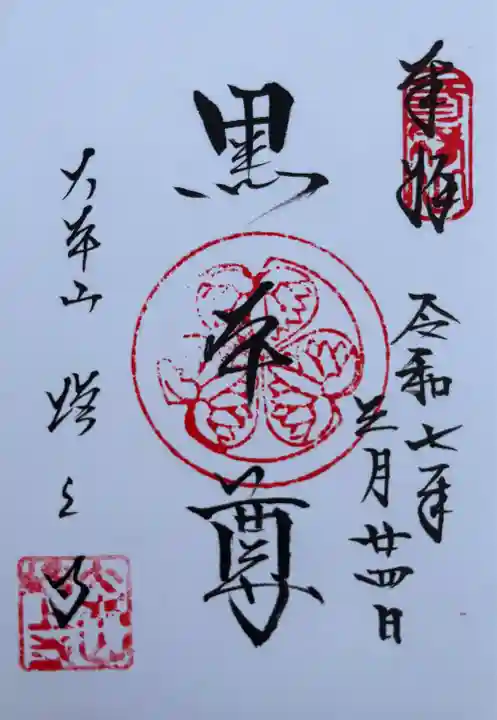 奉拝
令和七年
月廿四日
黒本尊
大本山 増上寺